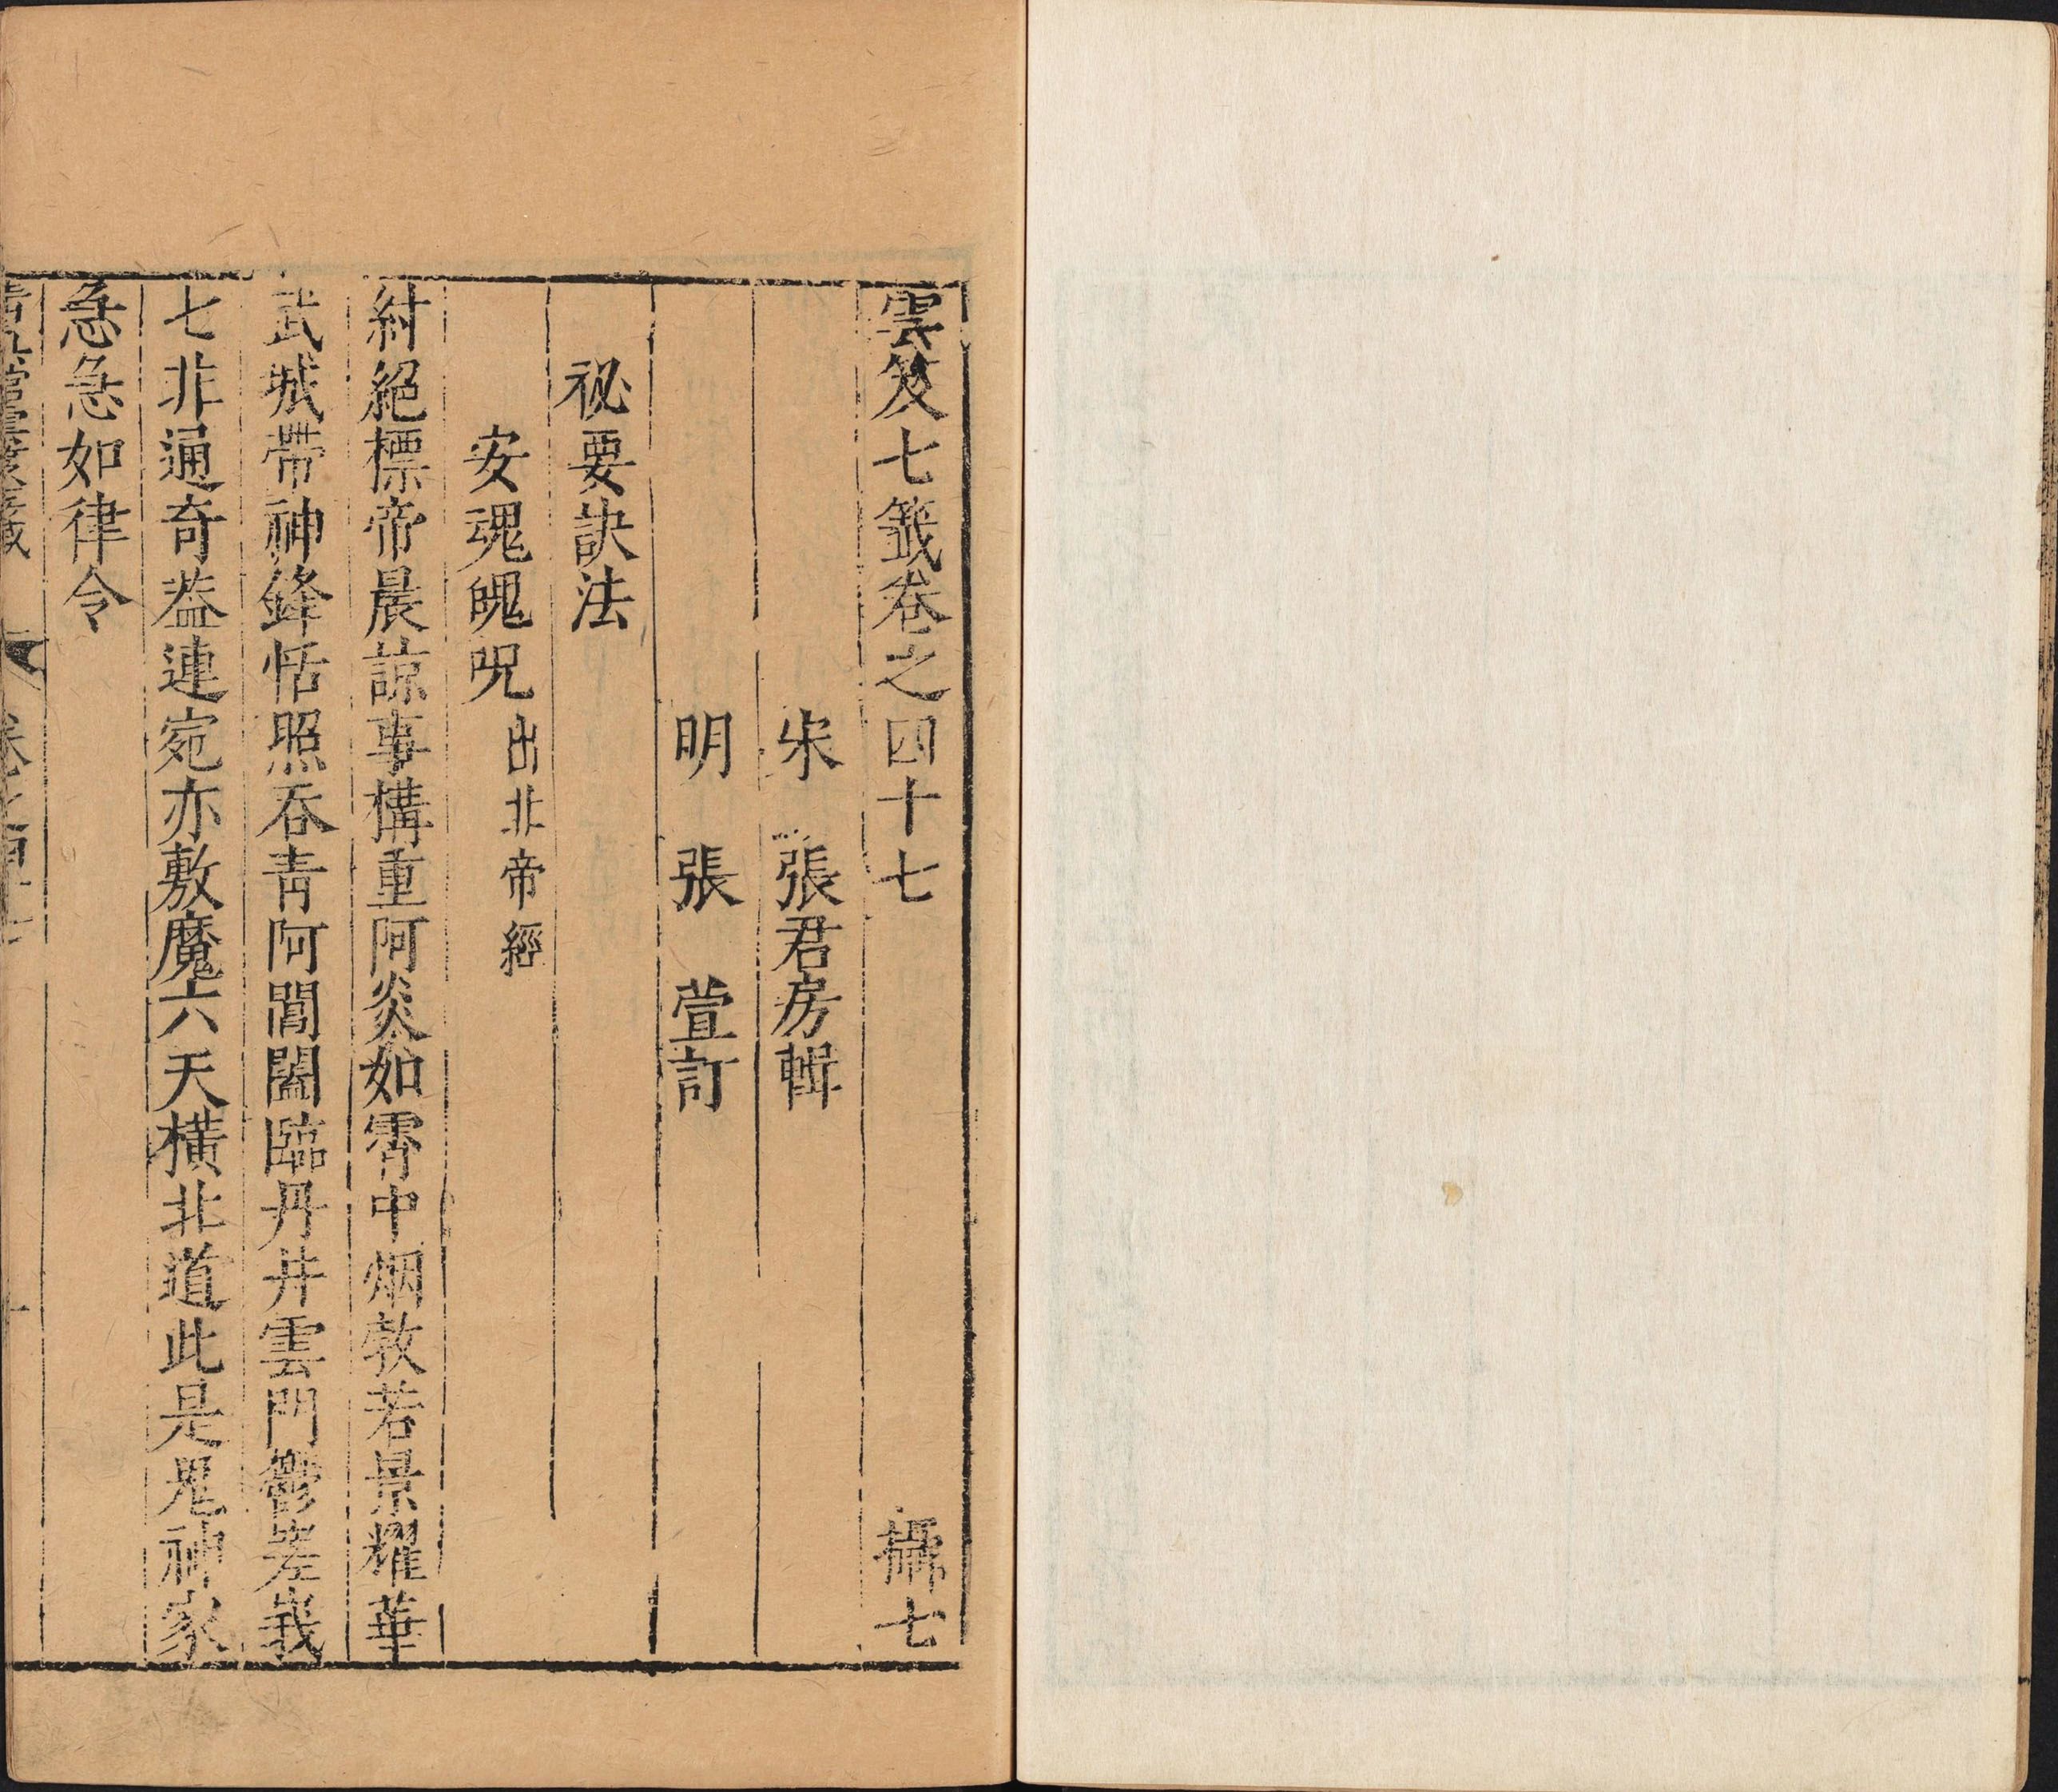 雲笈七籤卷之四十七 攝七
宋 張君房輯
明 張 萱訂
祕要訣法
安魂魄呪出北帝經
紂絕標帝晨諒事構重阿炎如霄中烟敦若景耀華
武城帶神鋒恬照吞青阿閶闔臨丹井雲門鬱嵳峩
七非通奇葢連宛亦敷魔六天橫北道此是鬼神家
急急如律令
清真館雲笈七籤 卷之四十七 一